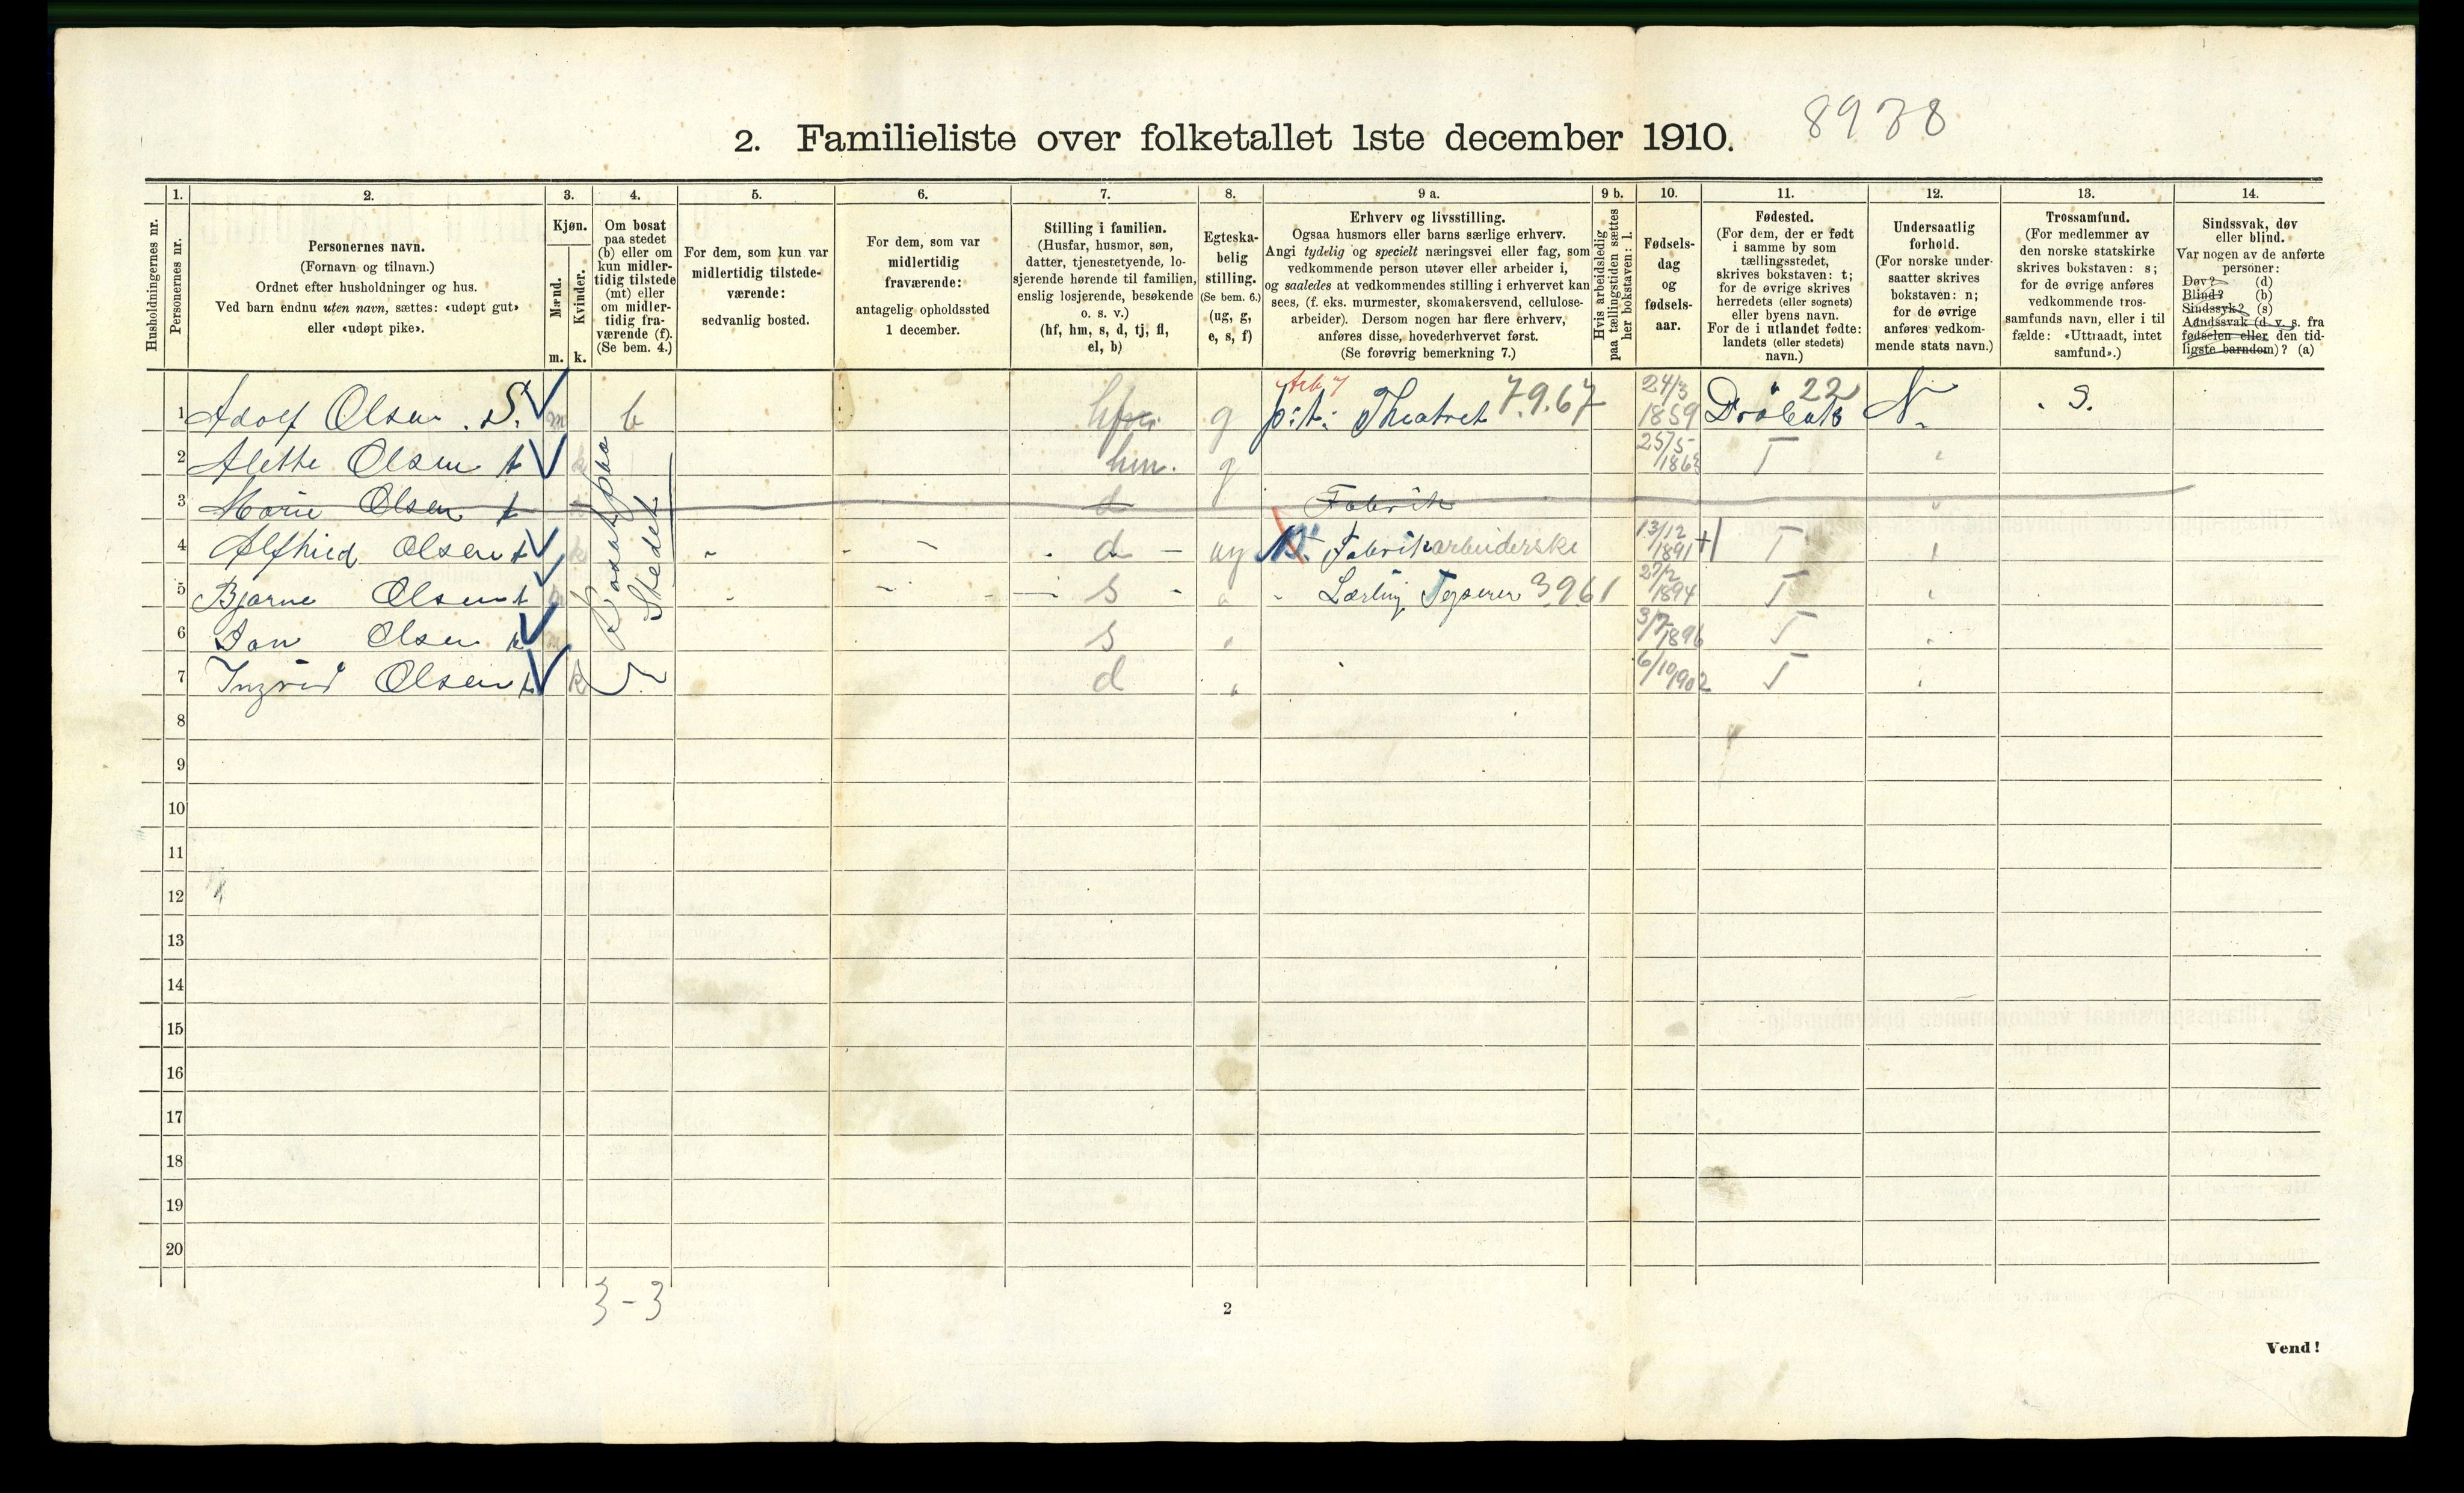 8938
2. Familieliste over folketallet 1ste december 1910.
Husholdningernes nr.
1. Personernes nr.
2. Personernes navn. (Fornavn og tilnavn.) Ordnet efter husholdninger og hus. Ved barn endnu uten navn, sættes: «udøpt gut» eller «udøpt pike».
3. Kjøn. Mænd. m. Kvinder. k.
4. Om bosat paa stedet (b) eller om kun midlertidig tilstede (mt) eller om midlertidig fraværende (f). (Se bem. 4.)
5. For dem, som kun var midlertidig tilstedeværende: sedvanlig bosted.
6. For dem, som var midlertidig fraværende: antagelig opholdssted 1 december.
7. Stilling i familien. (Husfar, husmor, søn, datter, tjenestetyende, losjerende hørende til familien, enslig losjerende, besøkende o. s. v.) (hf, hm, s, d, tj, fl, el, b)
8. Egteskabelig stilling. (Se bem. 6.) (ug, g, e, s, f)
9 a. Erhverv og livsstilling. Ogsaa husmors eller barns særlige erhverv. Angi tydelig og specielt næringsvei eller fag, som vedkommende person utøver eller arbeider i, og saaledes at vedkommendes stilling i erhvervet kan sees, (f. eks. murmester, skomakersvend, cellulosearbeider). Dersom nogen har flere erhverv, anføres disse, hovederhvervet først. (Se forøvrig bemerkning 7.)
9 b. Hvis arbeidsledig paa tællingstiden sættes her bokstaven: l.
10. Fødselsdag og fødselsaar.
11. Fødested. (For dem, der er født i samme by som tællingsstedet, skrives bokstaven: t; for de øvrige skrives herredets (eller sognets) eller byens navn. For de i utlandet fødte: landets (eller stedets) navn.)
12. Undersaatlig forhold. (For norske undersaatter skrives bokstaven: n; for de øvrige anføres vedkommende stats navn.)
13. Trossamfund. (For medlemmer av den norske statskirke skrives bokstaven: s; for de øvrige anføres vedkommende trossamfunds navn, eller i tilfælde: «Uttraadt, intet samfund».)
14. Sindssvak, døv eller blind. Var nogen av de anførte personer: Døv? (d) Blind? (b) Sindssyk? (s) Aandssvak (d. v. s. fra fødselen eller den tidligste barndom)? (a)
1 Adolf Olsen S. m b hf g p:t: Theatret 7.9.67 24/3 1859 Drøbak 22 N. s.
2 Alette Olsen t k hm. g 25/5 T
3 Marie Olsen t d Fabrik
4 Alfhild Olsen t k d ug Fabrikarbeiderske 13/12 1891 T
5 Bjarne Olsen t m s Lærling 3961 27/2 1894 T
6 Olsen t m s 3/7 1896 T
7 Ingrid Olsen t k d 6/10 1902 T
Bosat paa Stedet
8
9
10
11
12
13
14
15
16
17
18
19
20
3-3
2
Vend!